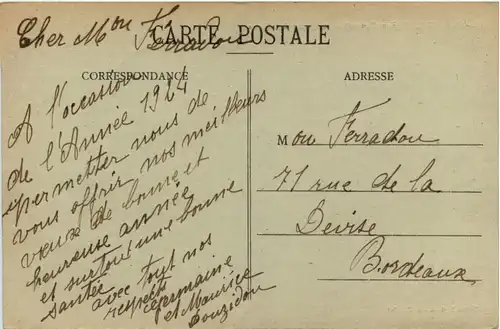 CARTE POSTALE
CORRESPONDANCE
ADRESSE
Cher Mon Ferradou
A l'occasion
de l'Année 1924
permettez nous de
vous offrir nos meilleurs
vœux de bonne et
heureuse année
et surtout une bonne
santée
avec tout nos
respects
Germaine
et Maurice
Mon Ferradou
71 rue de la
Devise
Bordeaux